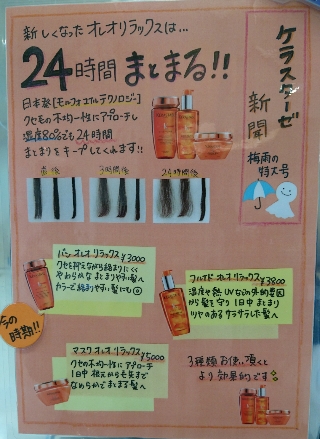 新しくなった オレオリラックスは…
24時間 まとまる!!
ケラスターゼ
新聞
梅雨の
特大号
日本発[モノフォコルテクノロジー]
クセモの不均一性にアプローチし
湿度80%でも24時間
まとまりをキープしてくれます!!
直後
3時間後
24時間後
バン オレオ リラックス ¥3000
クセを抑えながら絡まりにくく
やわらかな まとまりやすい髪へ
カラーで絡まりやすい髪にも◎
フルイド オレオ リラックス ¥3800
湿度や熱 UVなどの外的要因
から髪を守り 1日中 まとまり
ツヤのある サラサラヘア 髪へ
の時期!!
マスク オレオ リラックス ¥5000
クセの不均一性に アプローチ
1日中 根元から毛先まで
なめらかで まとまる髪へ
3種類 お使い頂くと
より 効果的です